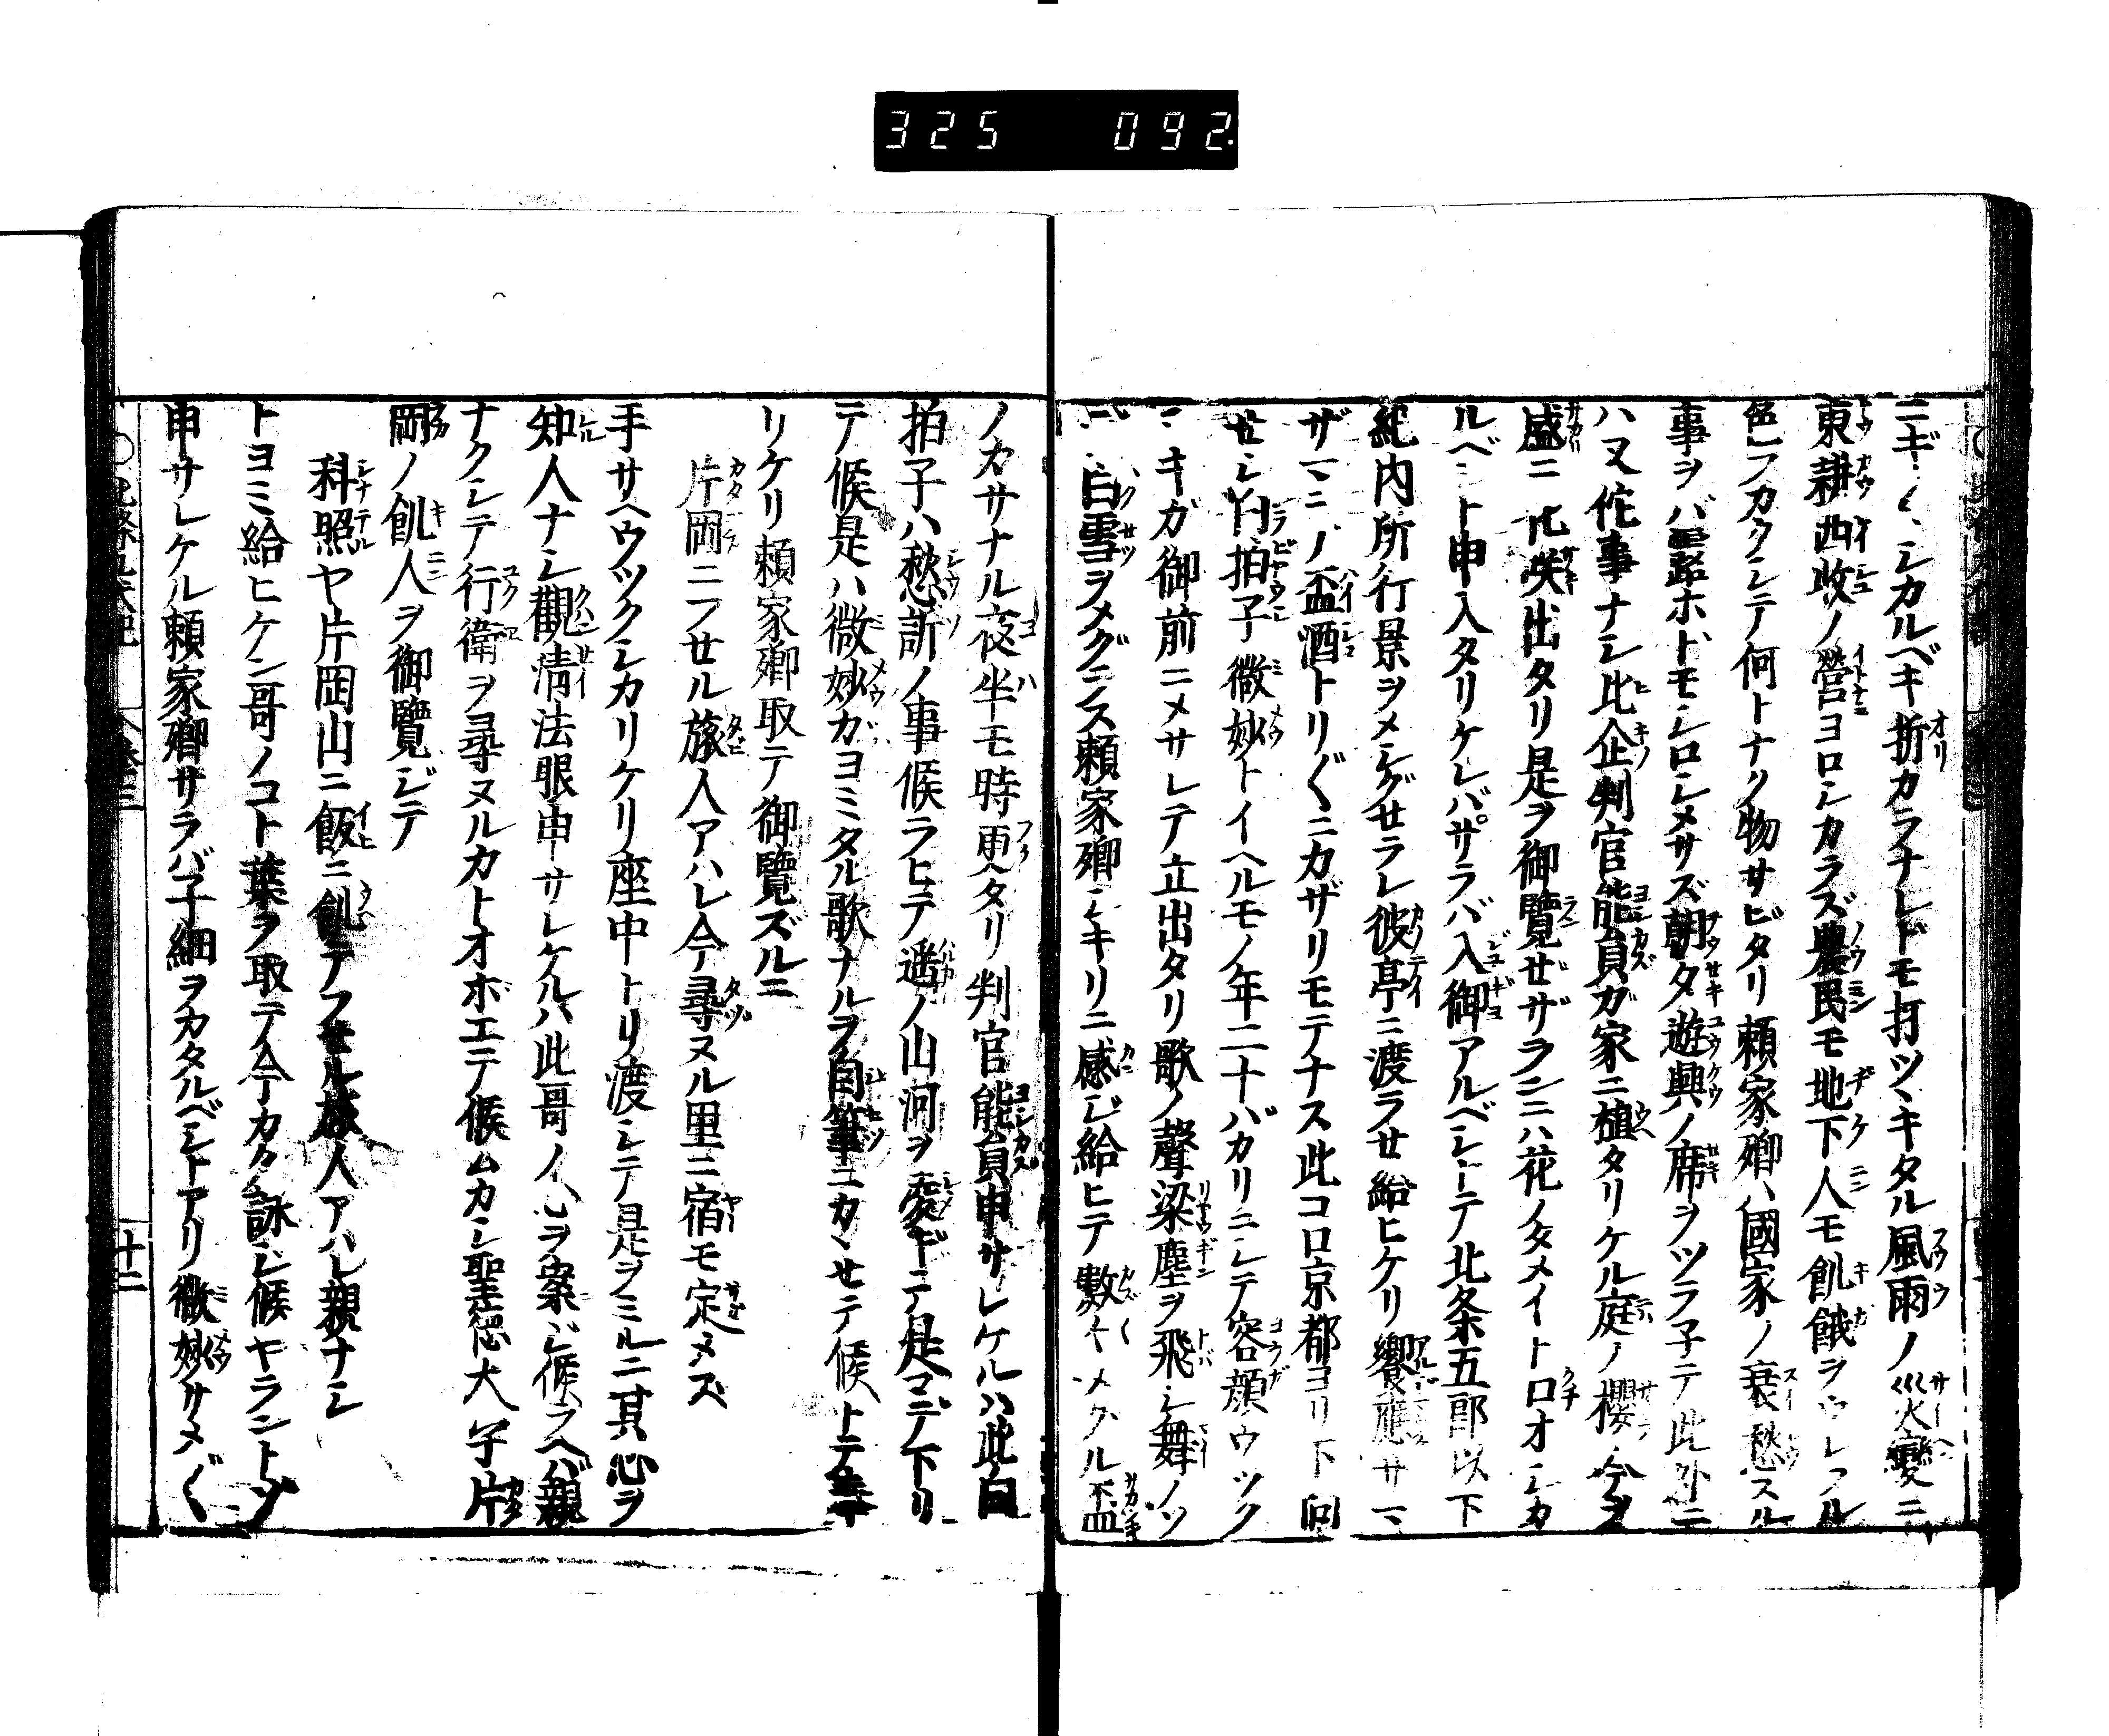 325 092
ニギ〳〵シカルベキ折カラナレドモ打ツヾキタル風雨ノ災變ニ
東耕西收ノ營ヨロシカラズ農民モ地下人モ飢餓ヲウレフル
色フカクシテ何トナク物サビタリ頼家卿ハ國家ノ衰愁スル
事ヲバ露ホドモシロシメサズ朝夕遊興ノ席ヲツラ子テ此外ニ
ハ又佗事ナシ比企判官能員ガ家ニ植タリケル庭ノ櫻今ヲ
盛ニ咲出タリ是ヲ御覽ゼザランニハ花ノタメイト口オシカ
ルベシト申入タリケレバサラバ入御アルベシトテ北条五郎以下
紀内所行景ヲメシグセラレ彼亭ニ渡ラせ給ヒケリ饗應サマ
ザマニノ盃酒トリ〴〵ニカザリモテナス此コロ京都ヨリ下向
せシ白拍子微妙トイヘルモノ年二十バカリニシテ容顔ウツク
シキガ御前ニメサレテ立出タリ歌ノ聲梁塵ヲ飛シ舞ノソ
デ白雪ヲメグラス頼家卿シキリニ感ジ給ヒテ數〳〵メグル盃
ノカサナル夜半モ時更タリ判官能員申サレケルハ此白
拍子ハ愁訴ノ事候ラヒテ遥ノ山河ヲ凌ギテ是マデ下リ
テ候是ハ微妙ガヨミタル歌ナルヲ自筆ニカヽせテ候トテ奉
リケリ頼家卿取テ御覽ズルニ
片岡ニフせル旅人アハレ今尋ヌル里ニ宿モ定メズ
手サヘウツクシカリケリ座中トリ渡シテ是ヲミルニ其心ヲ
知人ナシ觀清法眼申サレケルハ此哥ノ心ヲ案ジ候フヘバ親
ナクシテ行衛ヲ尋ヌルカトオボエテ候ムカシ聖德太子片
岡ノ飢人ヲ御覽ジテ
科照ヤ片岡山ニ飯ニ飢テフせル旅人アハレ親ナシ
トヨミ給ヒケン哥ノコト葉ヲ取テ今カク詠ジ候ヤラントゾ
申サレケル頼家卿サラバ子細ヲカタルベシトアリ微妙サメ〴〵
十二